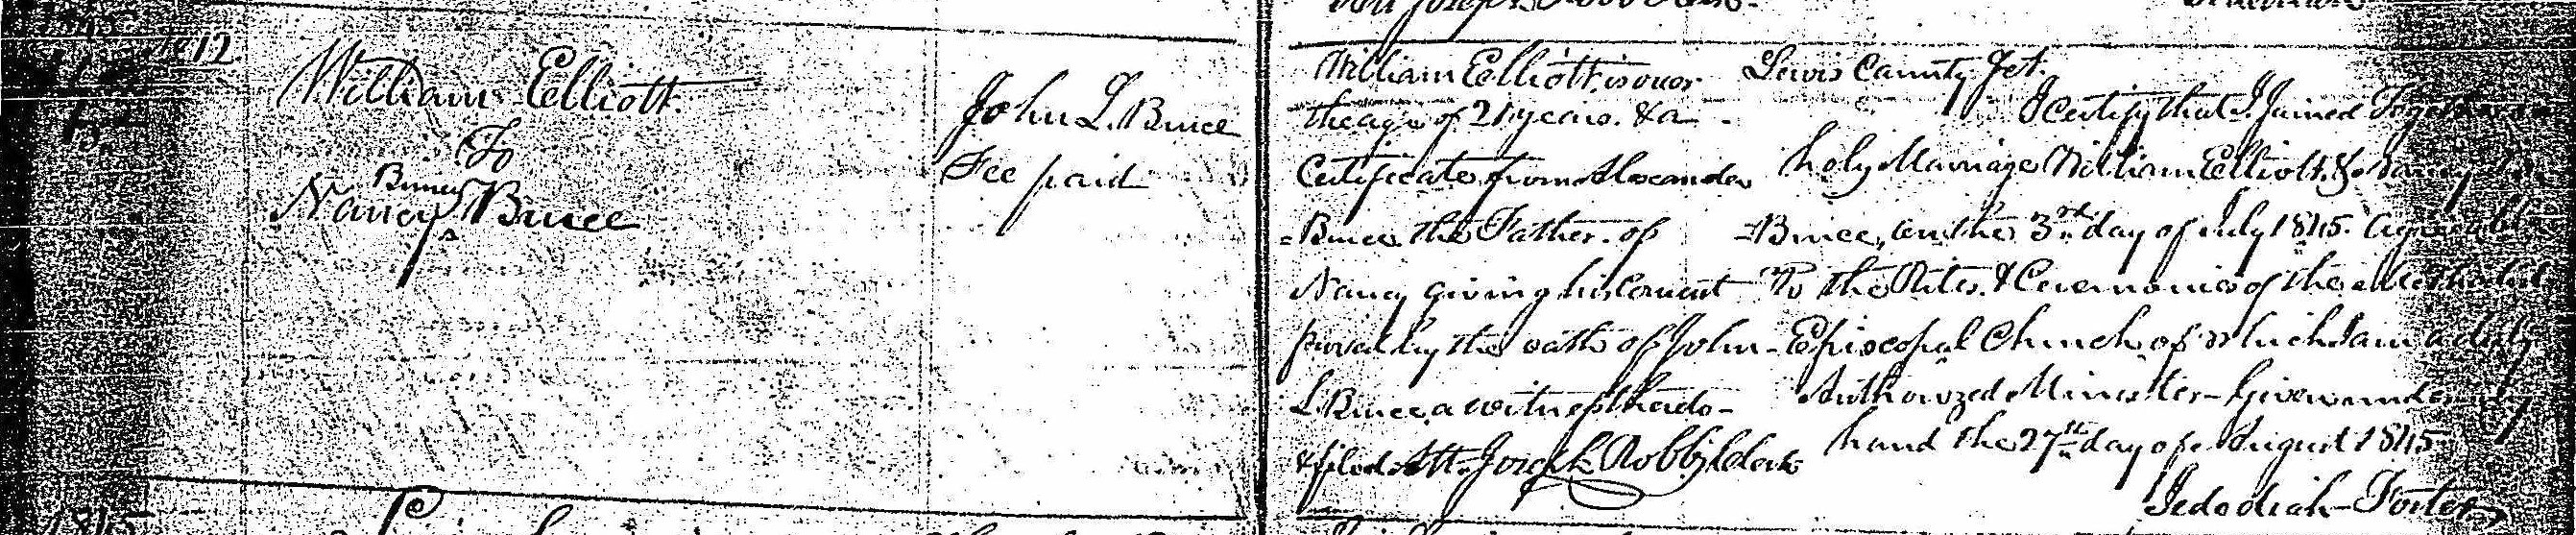 No 12
William Elliott
To
Bruce
Nancy Bruce
John L. Bruce
Fee paid
William Elliott is over
the age of 21 years. & a
Certificate from Alexander
Bruce the Father of
Nancy giving his Consent
proven by the oath of John
L Bruce a witness thereto
& filed Att. Joseph Robb, Clerk
Lewis County Sct.
I Certify that I Joined Together
holy Marriage William Elliott & Nancy
Bruce, on the 3rd day of July 1845. agreeable
To the Rites & Ceremonies of the Methodist
Episcopal Church of which I am a duly
Authorized Minister - Given under my
hand the 27th day of August 1845
Jedodiah Foster
1845